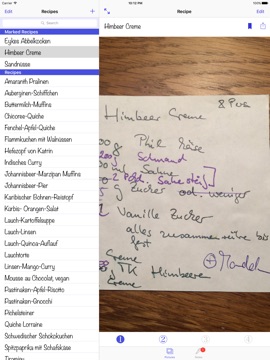 10:12 PM
100%
Edit
Recipes
+
Recipe
Edit
Search
Himbeer Creme
Marked Recipes
Eylas Abbelkooken
Himbeer Creme
Sandnüsse
Recipes
Amaranth Pralinen
Auberginen-Schiffchen
Buttermilch-Muffins
Chicoree-Quiche
Fenchel-Apfel-Quiche
Flammkuchen mit Walnüssen
Heilezopf von Katrin
Indisches Curry
Johannisbeer-Marzipan Muffins
Johannisbeer-Pier
Karibischer Bohnen-Reistopf
Kürbis- Orangen-Salat
Lauch-Kartoffelsuppe
Lauch-Linsen
Lauch-Quinoa-Auflauf
Lauchtorte
Linsen-Mango-Curry
Mousse au Chocolat, vegan
Pastinaken-Apfel-Risotto
Pastinaken-Gnocchi
Pichelsteiner
Quiche Lorraine
Schwedischer Schokokuchen
Spitzpaprika mit Schafskäse
8 Pers
Himbeer Creme
g
Schmand
Sahne
2 Pck. Sahnestfg
g Zucker od. weniger
Vanille Zucker
alles zusammen
fest
Creme
TK Himbeeren
Creme
⊕ Mandel
1
2
3
4